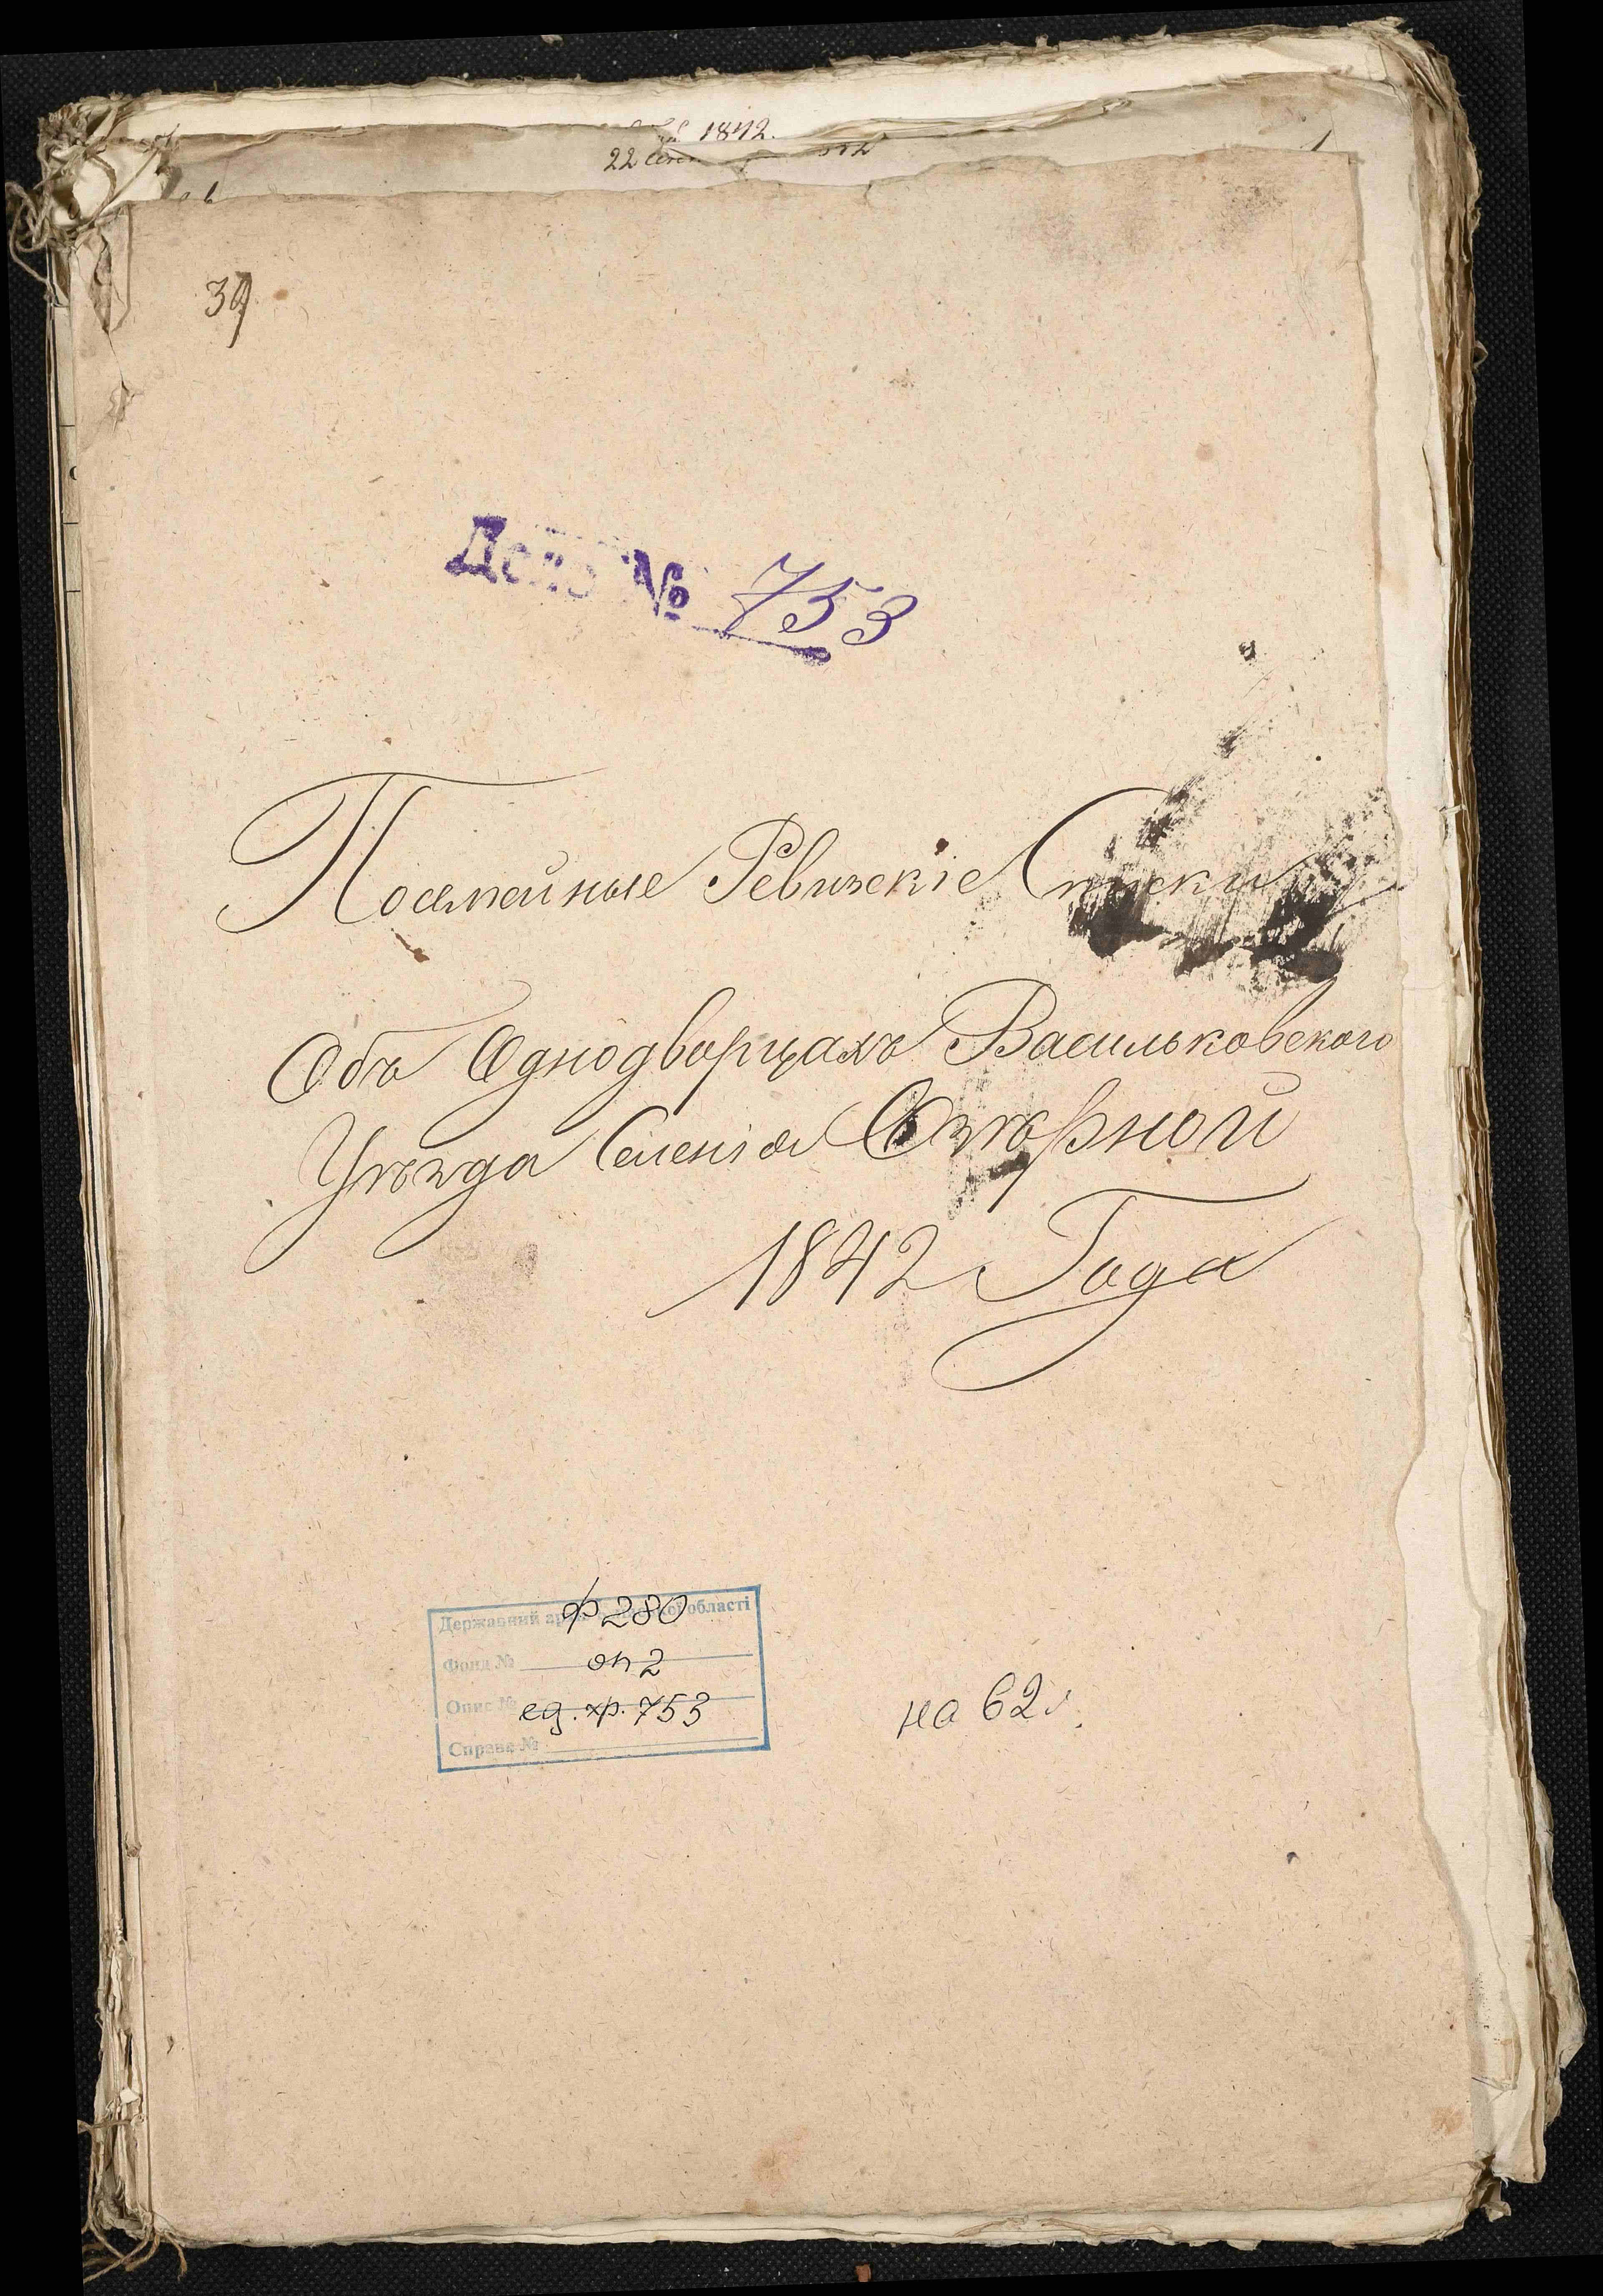 1842.
22
39
Дело № 753
Посемейные Ревизскіе Списки
Объ Однодворцахъ Васильковского
Уѣзда Селенія Озѣрной
1842 Года
Державний архів Київської області
ф 280
Фонд № оп 2
Опис № ед. хр. 753
Справа №
на 62 л.